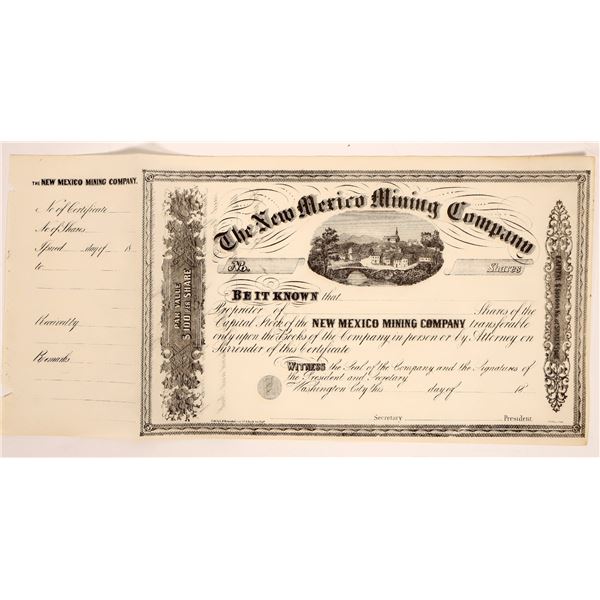 THE NEW MEXICO MINING COMPANY.
No of Certificate
No of Shares
Issued day of 18
to
Received by
Remarks
PAR VALUE
$100 PER SHARE
The New Mexico Mining Company
No.
Shares
BE IT KNOWN that
Proprietor of Shares of the
Capital Stock of the NEW MEXICO MINING COMPANY transferable
only upon the Books of the Company in person or by Attorney on
Surrender of this Certificate.
WITNESS the Seal of the Company and the Signatures of
the President and Secretary
Washington City this day of 18
Secretary
President